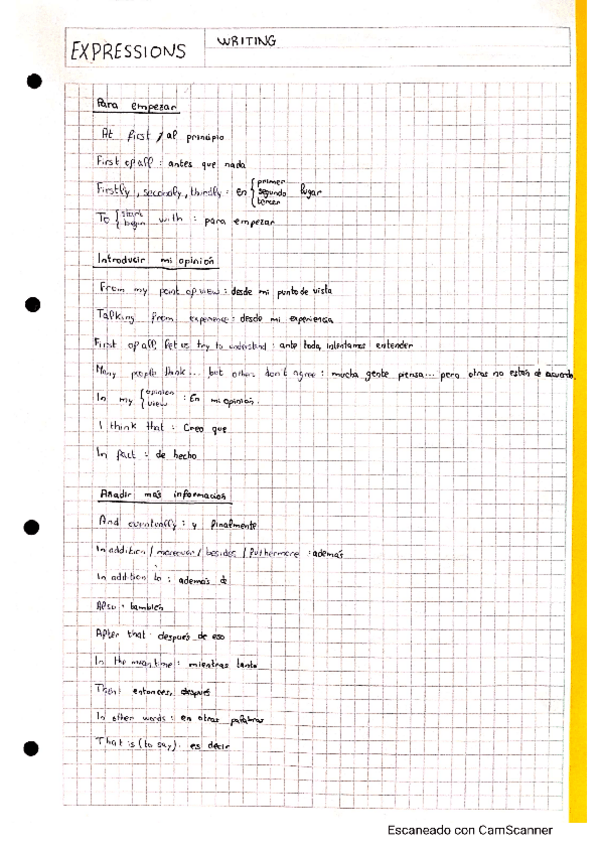 EXPRESSIONS
WRITING
Para empezar
At first / al principio
First of all : antes que nada
Firstly, secondly, thirdly : en { primer segundo tercer lugar
To { start begin with : para empezar
Introducir mi opinión
From my point of view : desde mi punto de vista
Talking from experience : desde mi experiencia
First of all, let us try to understand : ante todo, intentamos entender
Many people think... but others don't agree : mucha gente piensa... pero otras no están de acuerdo.
In my { opinion view : En mi opinión.
I think that : Creo que
In fact : de hecho
Añadir más información
And eventually : y finalmente
In addition / moreover / besides / Futhermore : además
In addition to : además de
Also : también
After that : después de eso
In the mean time : mientras tanto
Then : entonces, después
In other words : en otras palabras
That is (to say) : es decir
Escaneado con CamScanner